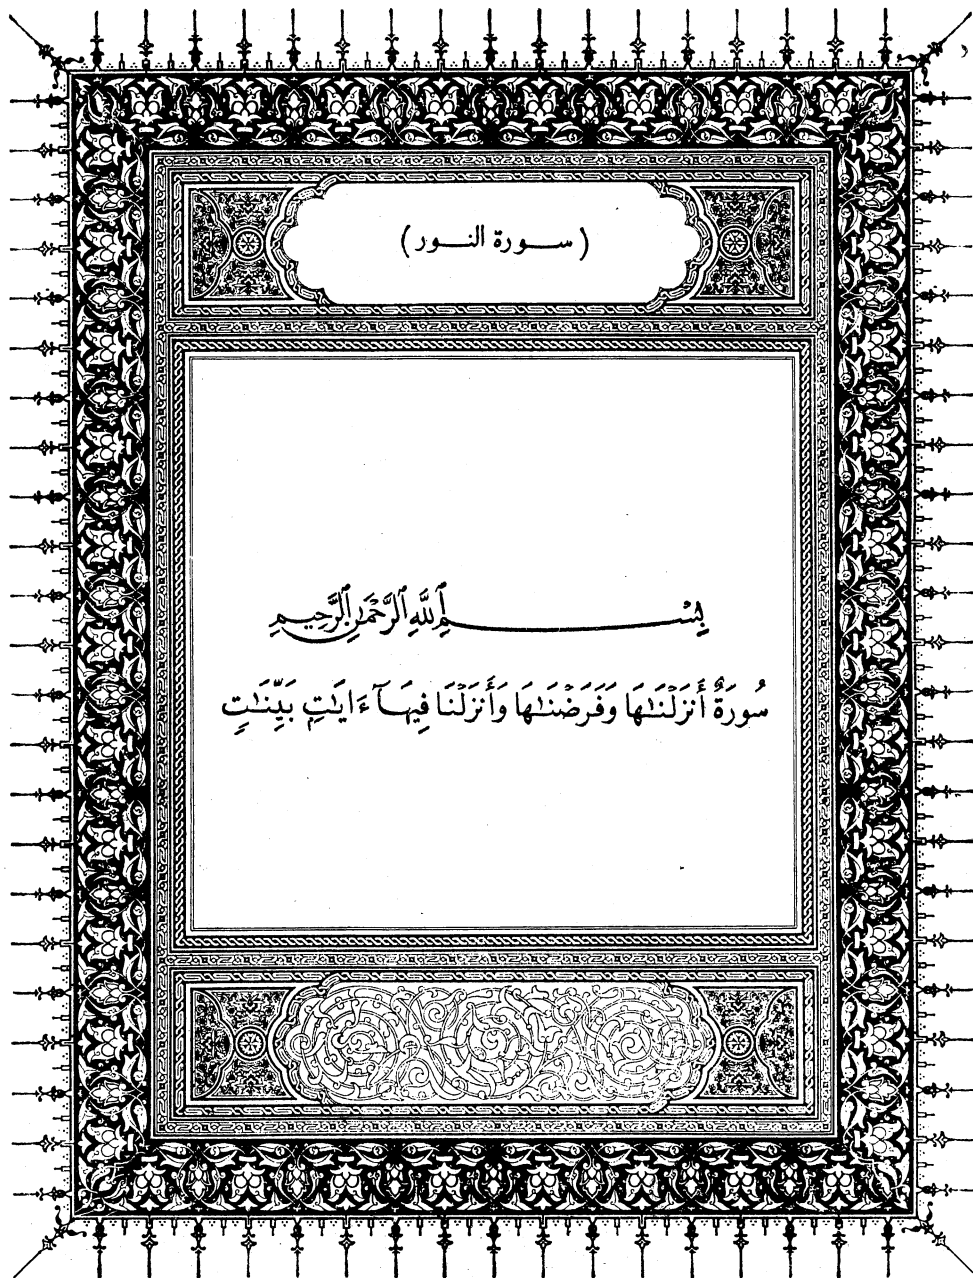 ( ســورة النــور )
بِسْــــــــمِ ٱللَّهِ ٱلرَّحْمَٰنِ ٱلرَّحِيمِ
سُورَةٌ أَنزَلْنَـٰهَا وَفَرَضْنَـٰهَا وَأَنزَلْنَا فِيهَآ ءَايَـٰتٍۭ بَيِّنَـٰتٍ